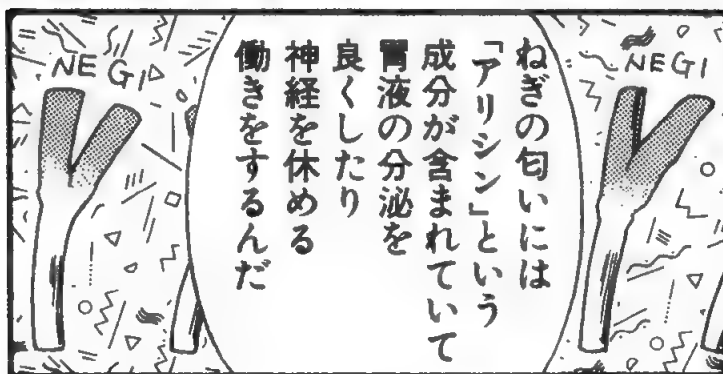 NEGI
ねぎの匂いには
「アリシン」という
成分が含まれていて
胃液の分泌を
良くしたり
神経を休める
働きをするんだ
NEGI